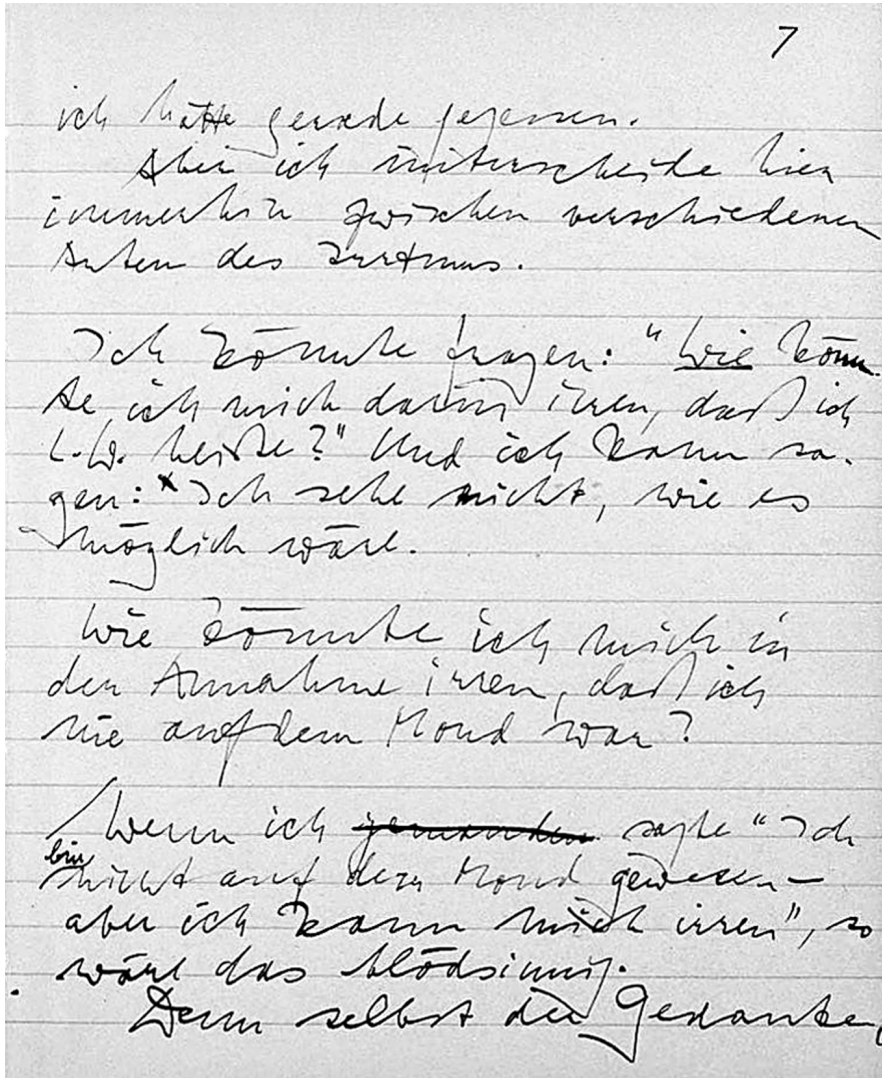 7
ich hatte gerade gegessen.
Aber ich unterscheide hier
immerhin zwischen verschiedenen
Arten des Irrtums.
Ich könnte fragen: "Wie könn-
te ich mich darin irren, daß ich
L.W. heiße?" Und ich kann sa-
gen: Ich sehe nicht, wie es
möglich wäre.
Wie könnte ich mich in
der Annahme irren, daß ich
nie auf dem Mond war?
Wenn ich jemandem sagte "Ich
bin
nicht auf dem Mond gewesen –
aber ich kann mich irren", so
wäre das blödsinnig.
Denn selbst der Gedanke,